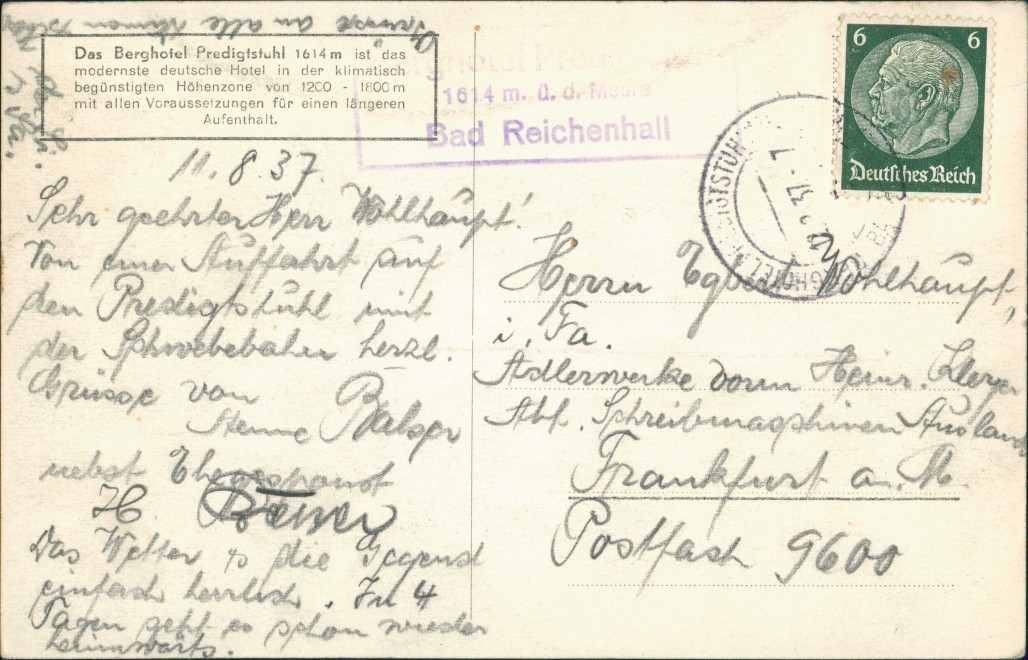 Das Berghotel Predigtstuhl 1614 m ist das
modernste deutsche Hotel in der klimatisch
begünstigten Höhenzone von 1200 - 1800 m
mit allen Voraussetzungen für einen längeren
Aufenthalt.
Berghotel Pred
1614 m. ü. d. Meere
Bad Reichenhall
6 6
Deutsches Reich
11.8.37.
Sehr geehrter Herr Wohlhaupt!
Von einer Auffahrt auf
den Predigtstuhl mit
der Schwebebahn herzl.
Grüsse von
Henne Balser
nebst Ehegespanst
H.
Das Wetter u. die Gegend
einfach herrlich. In 4
Tagen geht es schon wieder
heimwärts.
Grüsse an alle
Herrn Egbert Wohlhaupt,
i. Fa.
Adlerwerke vorm Heinr. Kleyer
Abt. Schreibmaschinen Ausland
Frankfurt a. M.
Postfach 9600